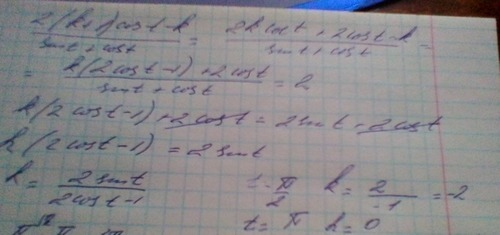 2(k+1)cost-k / sint+cost = 2kcost+2cost-k / sint+cost =
= k(2cost-1)+2cost / sint+cost = 2
k(2cost-1)+2cost = 2sint-2cost
k(2cost-1) = 2sint
k = 2sint / 2cost-1 t=-π/2 k= 2/-1 =-2
t=π k=0